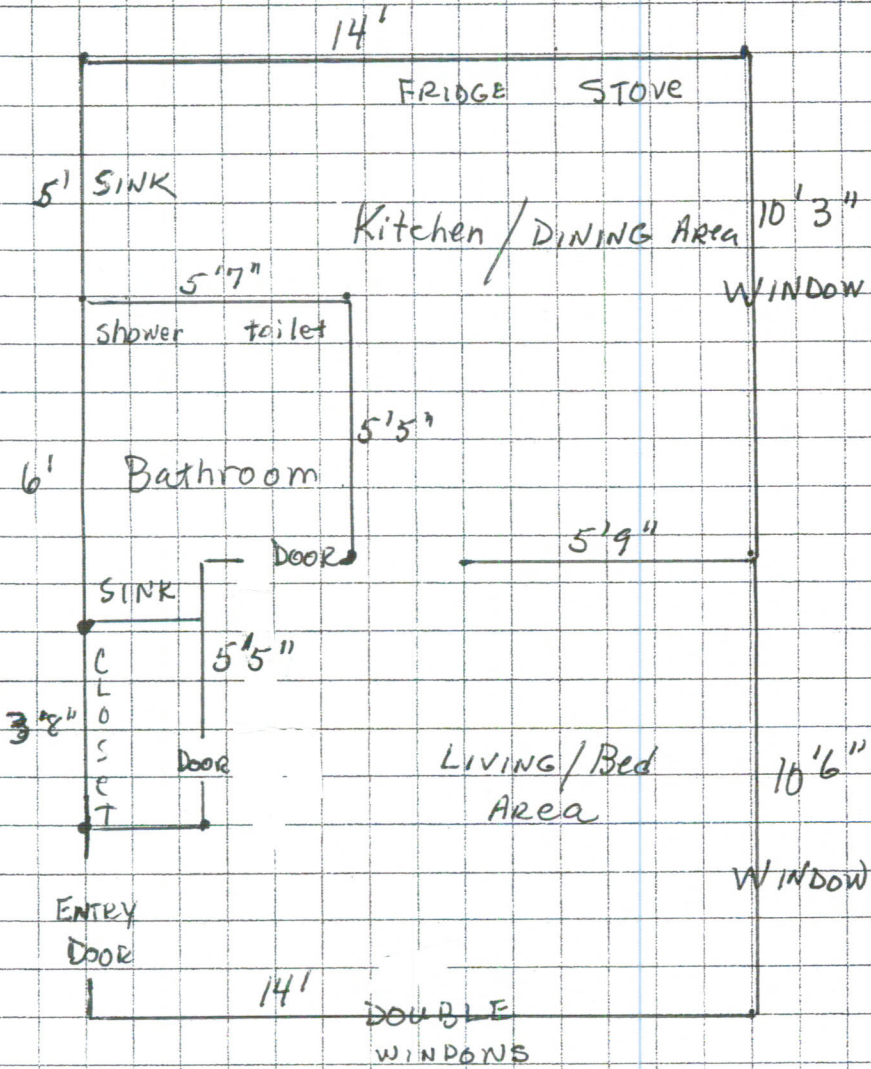 14'
FRIDGE STOVE
5' SINK
Kitchen / DINING AREA 10'3"
5'7"
WINDOW
shower toilet
5'5"
6' Bathroom
5'9"
DOOR
SINK
5'5"
CLOSET
3'8"
DOOR
LIVING/Bed
AREA
10'6"
WINDOW
ENTRY
DOOR
14'
DOUBLE
WINDOWS